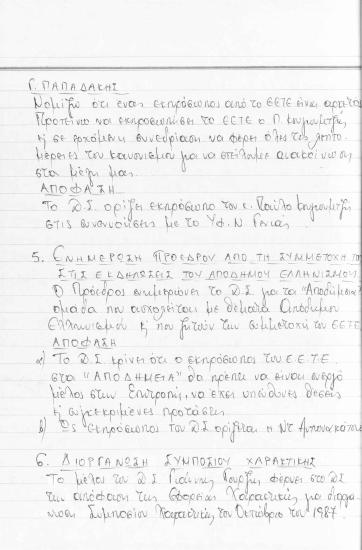 Γ. ΠΑΠΑΔΑΚΗΣ
Νομίζω ότι ένας εκπρόσωπος από το ΕΕΤΕ είναι αρκετός
Προτείνω να εκπροσωπήσει το ΕΕΤΕ ο Π.
κ σε ερχόμενη συνεδρίαση να φέρει όλες τις λεπτο-
μέρειες του κανονισμού για να στείλουμε ανακοίνωση
στα μέλη μας.
ΑΠΟΦΑΣΗ
Το Δ.Σ. ορίζει εκπρόσωπο τον κ. Παύλο
στις συναντήσεις με το Υφ. Ν. Γενιάς
5. ΕΝΗΜΕΡΩΣΗ ΠΡΟΕΔΡΟΥ ΑΠΟ ΤΗ ΣΥΜΜΕΤΟΧΗ ΤΟΥ
ΣΤΙΣ ΕΚΔΗΛΩΣΕΙΣ ΤΟΥ ΑΠΟΔΗΜΟΥ ΕΛΛΗΝΙΣΜΟΥ
Ο Πρόεδρος ενημερώνει το Δ.Σ για τα "Αποδήμεια"
ομάδα που ασχολείται με θέματα Απόδημου
Ελληνισμού κ που ζητούν την συμμετοχή του ΕΕΤΕ
ΑΠΟΦΑΣΗ
α) Το Δ.Σ. κρίνει ότι ο εκπρόσωπος του Ε.Ε.Τ.Ε
στα "ΑΠΟΔΗΜΕΙΑ" θα πρέπει να είναι ενεργό
μέλος στην Επιτροπή, να έχει υπεύθυνες θέσεις
κ συγκεκριμένες προτάσεις.
β) Ως εκπρόσωπος του Δ.Σ ορίζεται η
6. ΔΙΟΡΓΑΝΩΣΗ ΣΥΜΠΟΣΙΟΥ ΧΑΡΑΚΤΙΚΗΣ
Το μέλος του Δ.Σ Γιάννης Γουρζής φέρνει στο Δ.Σ
την απόφαση της Εφορείας Χαρακτικής για διοργά-
νωση Συμποσίου Χαρακτικής τον Οκτώβριο του 1987.